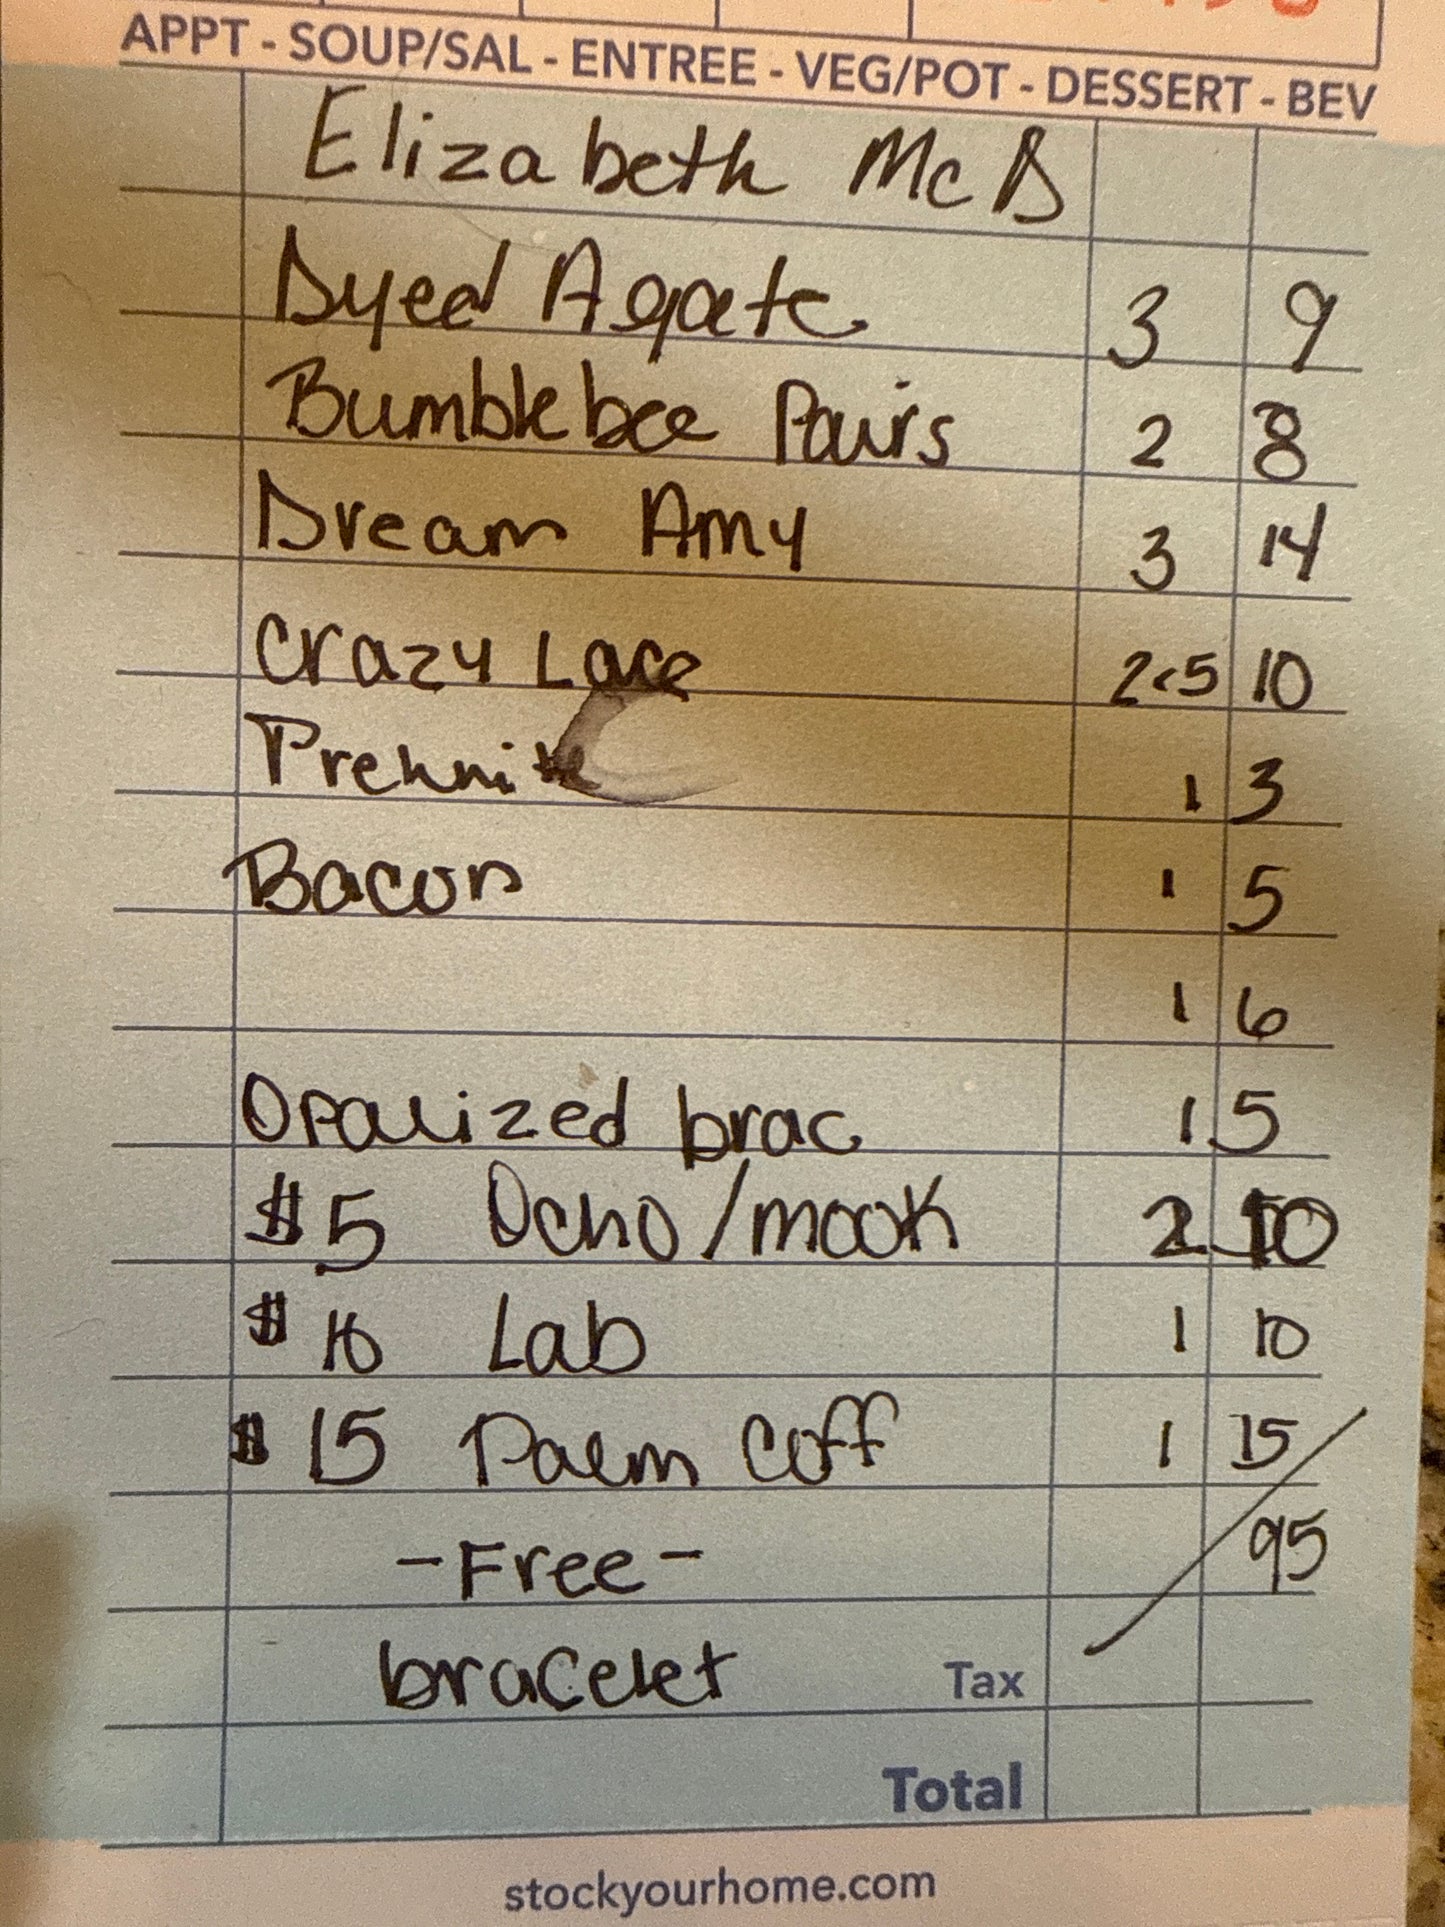 APPT - SOUP/SAL - ENTREE - VEG/POT - DESSERT - BEV
Elizabeth McD
Dyed Agate 3 9
Bumblebee Pairs 2 8
Dream Amy 3 14
Crazy Lace 2<5 10
Prehnite 1 3
Bacon 1 5
1 6
Opalized brac 1 5
$5 Ocho/mook 2 10
$10 Lab 1 10
$15 Palm Coff 1 15
-Free- 95
bracelet Tax
Total
stockyourhome.com